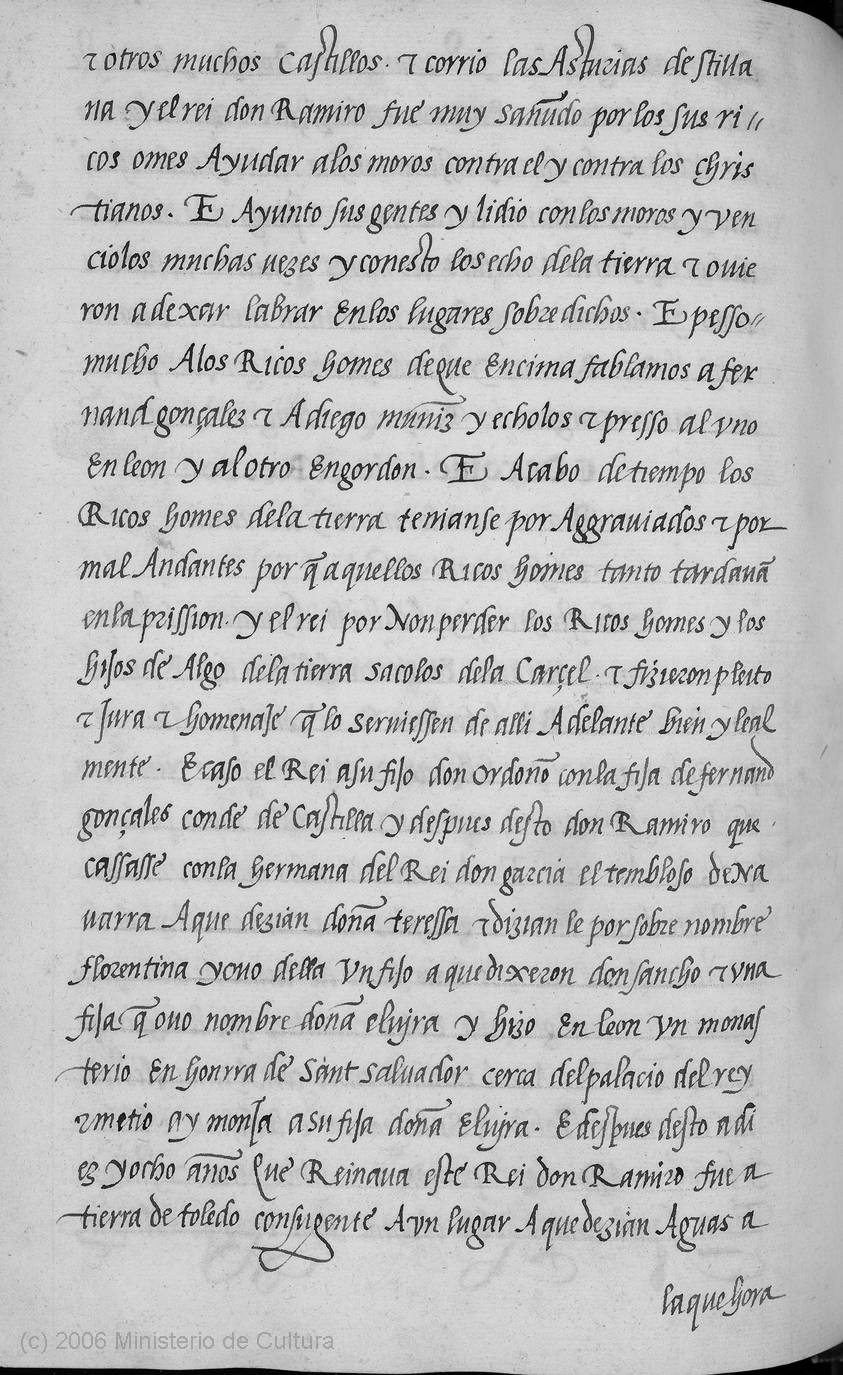 ⁊ otros muchos Castillos. ⁊ corrio las Asturias de stilla
na y el rei don Ramiro fue muy sañudo por los sus ri //
cos omes Ayudar a los moros contra el y contra los chris
tianos. E Ayunto sus gentes y lidio con los moros y ven
ciolos muchas uezes y con esto los echo dela tierra ⁊ ouie
ron a dexar labrar En los lugares sobre dichos. E pesso //
mucho A los Ricos homes de que Encima fablamos a fer
nand gonçalez ⁊ A diego muñiz y echolos ⁊ presso al vno
En leon y al otro En gordon. E Acabo de tiempo los
Ricos homes dela tierra tenianse por Aggraviados ⁊ por
mal Andantes por q̃ aquellos Ricos homes tanto tardauã
en la prission. y el rei por Non perder los Ricos homes y los
hijos de Algo dela tierra sacolos dela Carçel. ⁊ fizieron pleito
⁊ Jura ⁊ homenaje q̃ lo seruiessen de alli Adelante bien y leal
mente. E caso el Rei a su fijo don ordoño con la fija de fernand
gonçales conde de Castilla y despues desto don Ramiro que
cassasse con la hermana del Rei don garcia el tembloso de Na
uarra A que dezian doña teressa ⁊ dizian le por sobre nombre
florentina y ouo della Vn fijo a que dixeron don sancho ⁊ vna
fija q̃ ouo nombre doña eluira y hizo En leon Vn monas
terio En honrra de Sant saluador cerca del palacio del rey
⁊ metio ay monja a su fija doña Eluira. E despues desto a di
ez y ocho años Que Reinaua este Rei don Ramiro fue a
tierra de toledo con su gente A vn lugar A que dezian Aguas a
la que hora
(c) 2006 Ministerio de Cultura